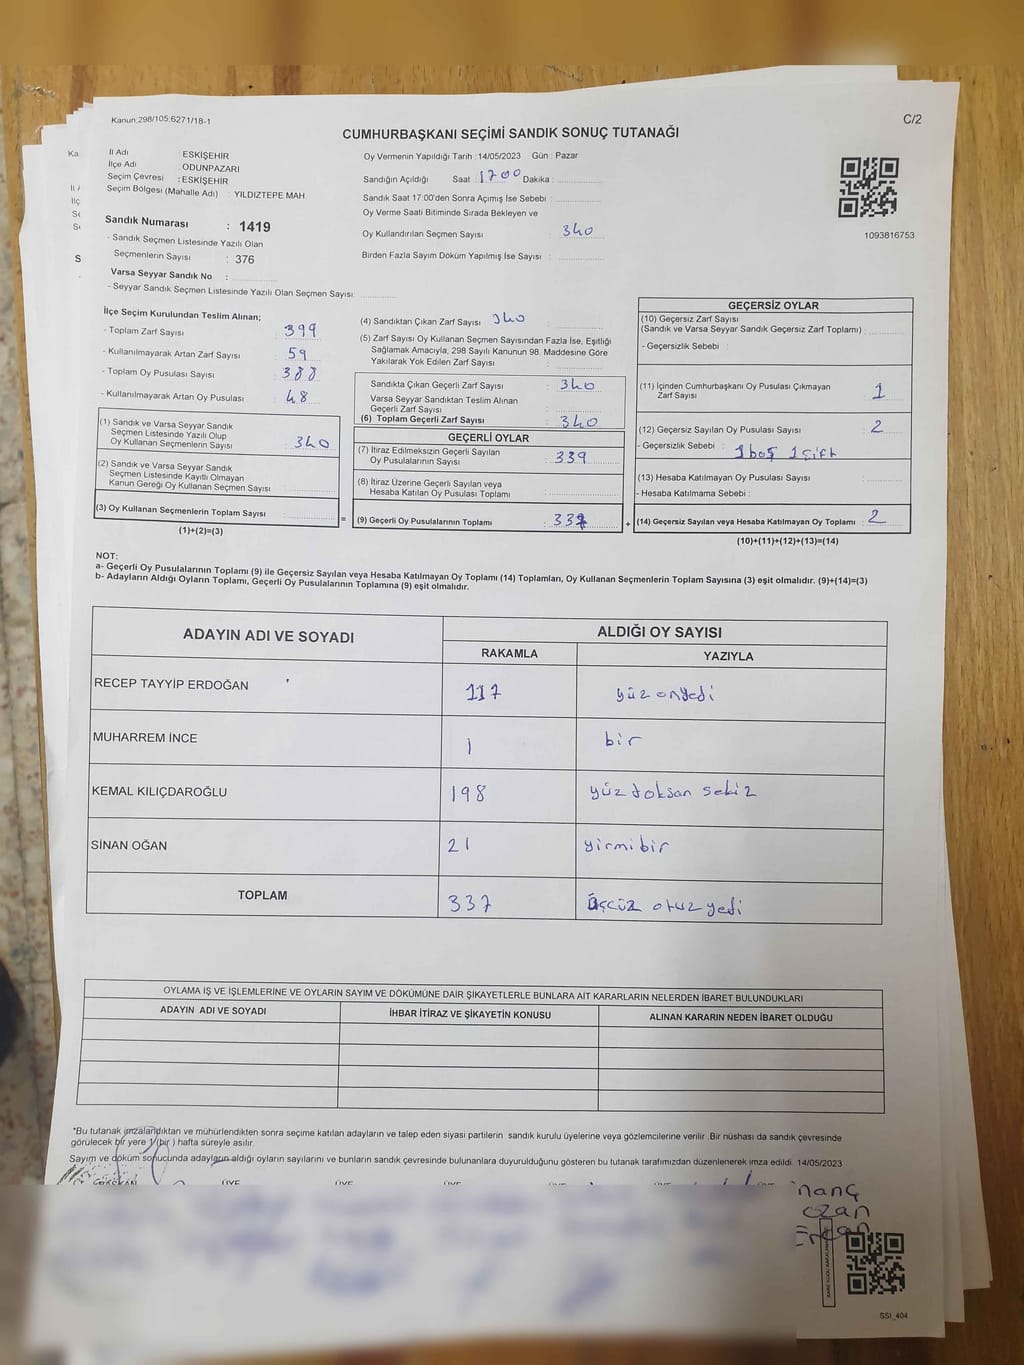 Kanun;298/105;6271/18-1
C/2
CUMHURBAŞKANI SEÇİMİ SANDIK SONUÇ TUTANAĞI
İl Adı : ESKİŞEHİR
İlçe Adı : ODUNPAZARI
Seçim Çevresi : ESKİŞEHİR
Seçim Bölgesi (Mahalle Adı) : YILDIZTEPE MAH
Sandık Numarası : 1419
- Sandık Seçmen Listesinde Yazılı Olan
Seçmenlerin Sayısı : 376
Varsa Seyyar Sandık No :
- Seyyar Sandık Seçmen Listesinde Yazılı Olan Seçmen Sayısı:
Oy Vermenin Yapıldığı Tarih : 14/05/2023 Gün : Pazar
Sandığın Açıldığı Saat : 1700 Dakika :
Sandık Saat 17:00'den Sonra Açımış İse Sebebi :
Oy Verme Saati Bitiminde Sırada Bekleyen ve
Oy Kullandırılan Seçmen Sayısı : 340
Birden Fazla Sayım Döküm Yapılmış İse Sayısı :
1093816753
İlçe Seçim Kurulundan Teslim Alınan;
- Toplam Zarf Sayısı : 399
- Kullanılmayarak Artan Zarf Sayısı : 59
- Toplam Oy Pusulası Sayısı : 388
- Kullanılmayarak Artan Oy Pusulası : 48
(1) Sandık ve Varsa Seyyar Sandık
Seçmen Listesinde Yazılı Olup
Oy Kullanan Seçmenlerin Sayısı : 340
(2) Sandık ve Varsa Seyyar Sandık
Seçmen Listesinde Kayıtlı Olmayan
Kanun Gereği Oy Kullanan Seçmen Sayısı :
(3) Oy Kullanan Seçmenlerin Toplam Sayısı :
(1)+(2)=(3)
(4) Sandıktan Çıkan Zarf Sayısı 340 :
(5) Zarf Sayısı Oy Kullanan Seçmen Sayısından Fazla İse, Eşitliği
Sağlamak Amacıyla, 298 Sayılı Kanunun 98. Maddesine Göre
Yakılarak Yok Edilen Zarf Sayısı :
Sandıkta Çıkan Geçerli Zarf Sayısı : 340
Varsa Seyyar Sandıktan Teslim Alınan
Geçerli Zarf Sayısı :
(6) Toplam Geçerli Zarf Sayısı : 340
GEÇERLİ OYLAR
(7) İtiraz Edilmeksizin Geçerli Sayılan
Oy Pusulalarının Sayısı : 339
(8) İtiraz Üzerine Geçerli Sayılan veya
Hesaba Katılan Oy Pusulası Toplamı :
= (9) Geçerli Oy Pusulalarının Toplamı : 337 +
GEÇERSİZ OYLAR
(10) Geçersiz Zarf Sayısı
(Sandık ve Varsa Seyyar Sandık Geçersiz Zarf Toplamı) :
- Geçersizlik Sebebi :
(11) İçinden Cumhurbaşkanı Oy Pusulası Çıkmayan
Zarf Sayısı : 1
(12) Geçersiz Sayılan Oy Pusulası Sayısı : 2
- Geçersizlik Sebebi : 1 boş 1 çift
(13) Hesaba Katılmayan Oy Pusulası Sayısı :
- Hesaba Katılmama Sebebi :
(14) Geçersiz Sayılan veya Hesaba Katılmayan Oy Toplamı : 2
(10)+(11)+(12)+(13)=(14)
NOT:
a- Geçerli Oy Pusulalarının Toplamı (9) ile Geçersiz Sayılan veya Hesaba Katılmayan Oy Toplamı (14) Toplamları, Oy Kullanan Seçmenlerin Toplam Sayısına (3) eşit olmalıdır. (9)+(14)=(3)
b- Adayların Aldığı Oyların Toplamı, Geçerli Oy Pusulalarının Toplamına (9) eşit olmalıdır.
ADAYIN ADI VE SOYADI
ALDIĞI OY SAYISI
RAKAMLA YAZIYLA
RECEP TAYYİP ERDOĞAN 117 yüz onyedi
MUHARREM İNCE 1 bir
KEMAL KILIÇDAROĞLU 198 yüz doksan sekiz
SİNAN OĞAN 21 yirmibir
TOPLAM 337 üçcüz otuz yedi
OYLAMA İŞ VE İŞLEMLERİNE VE OYLARIN SAYIM VE DÖKÜMÜNE DAİR ŞİKAYETLERLE BUNLARA AİT KARARLARIN NELERDEN İBARET BULUNDUKLARI
ADAYIN ADI VE SOYADI İHBAR İTİRAZ VE ŞİKAYETİN KONUSU ALINAN KARARIN NEDEN İBARET OLDUĞU
*Bu tutanak imzalandıktan ve mühürlendikten sonra seçime katılan adayların ve talep eden siyasi partilerin sandık kurulu üyelerine veya gözlemcilerine verilir .Bir nüshası da sandık çevresinde
görülecek bir yere 1 (bir ) hafta süreyle asılır.
Sayım ve döküm sonucunda adayların aldığı oyların sayılarını ve bunların sandık çevresinde bulunanlara duyurulduğunu gösteren bu tutanak tarafımızdan düzenlenerek imza edildi. 14/05/2023
BAŞKAN ÜYE ÜYE ÜYE ÜYE ÜYE
inanç
ozan
Ercan
SSİ_404